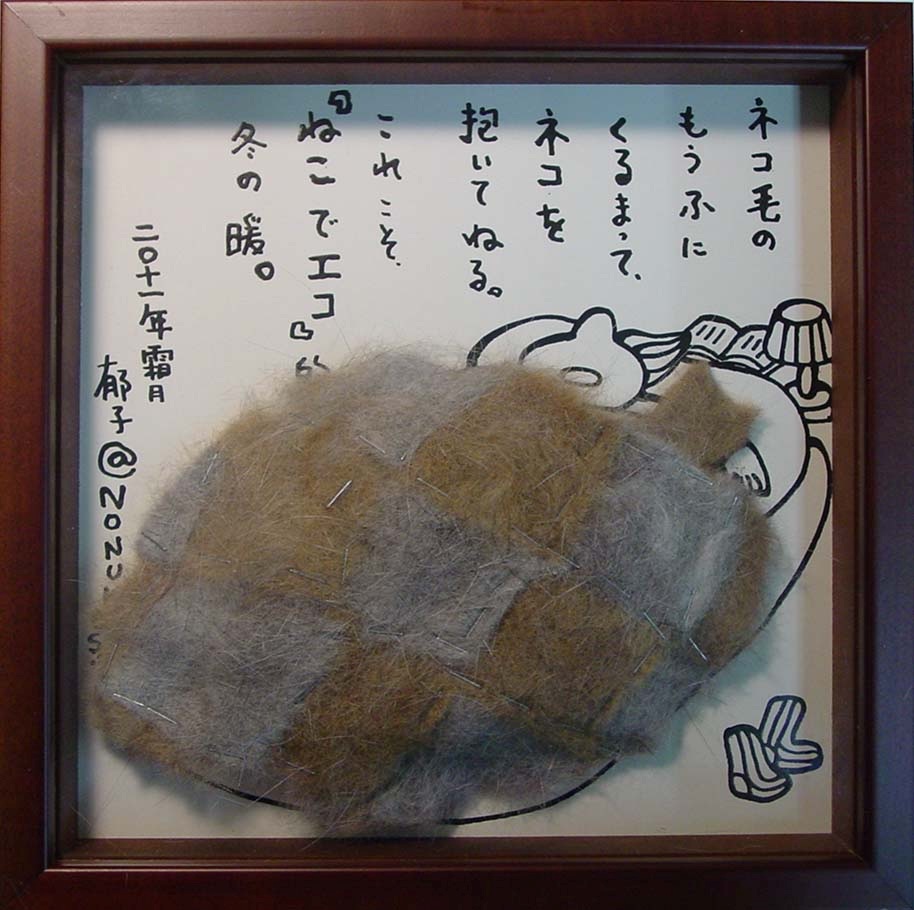 ネコ毛の
もうふに
くるまって、
ネコを
抱いてねる。
これこそ、
『ねこでエコ』的
冬の暖。
二〇十一年霜月
郁子@NONU.
S.